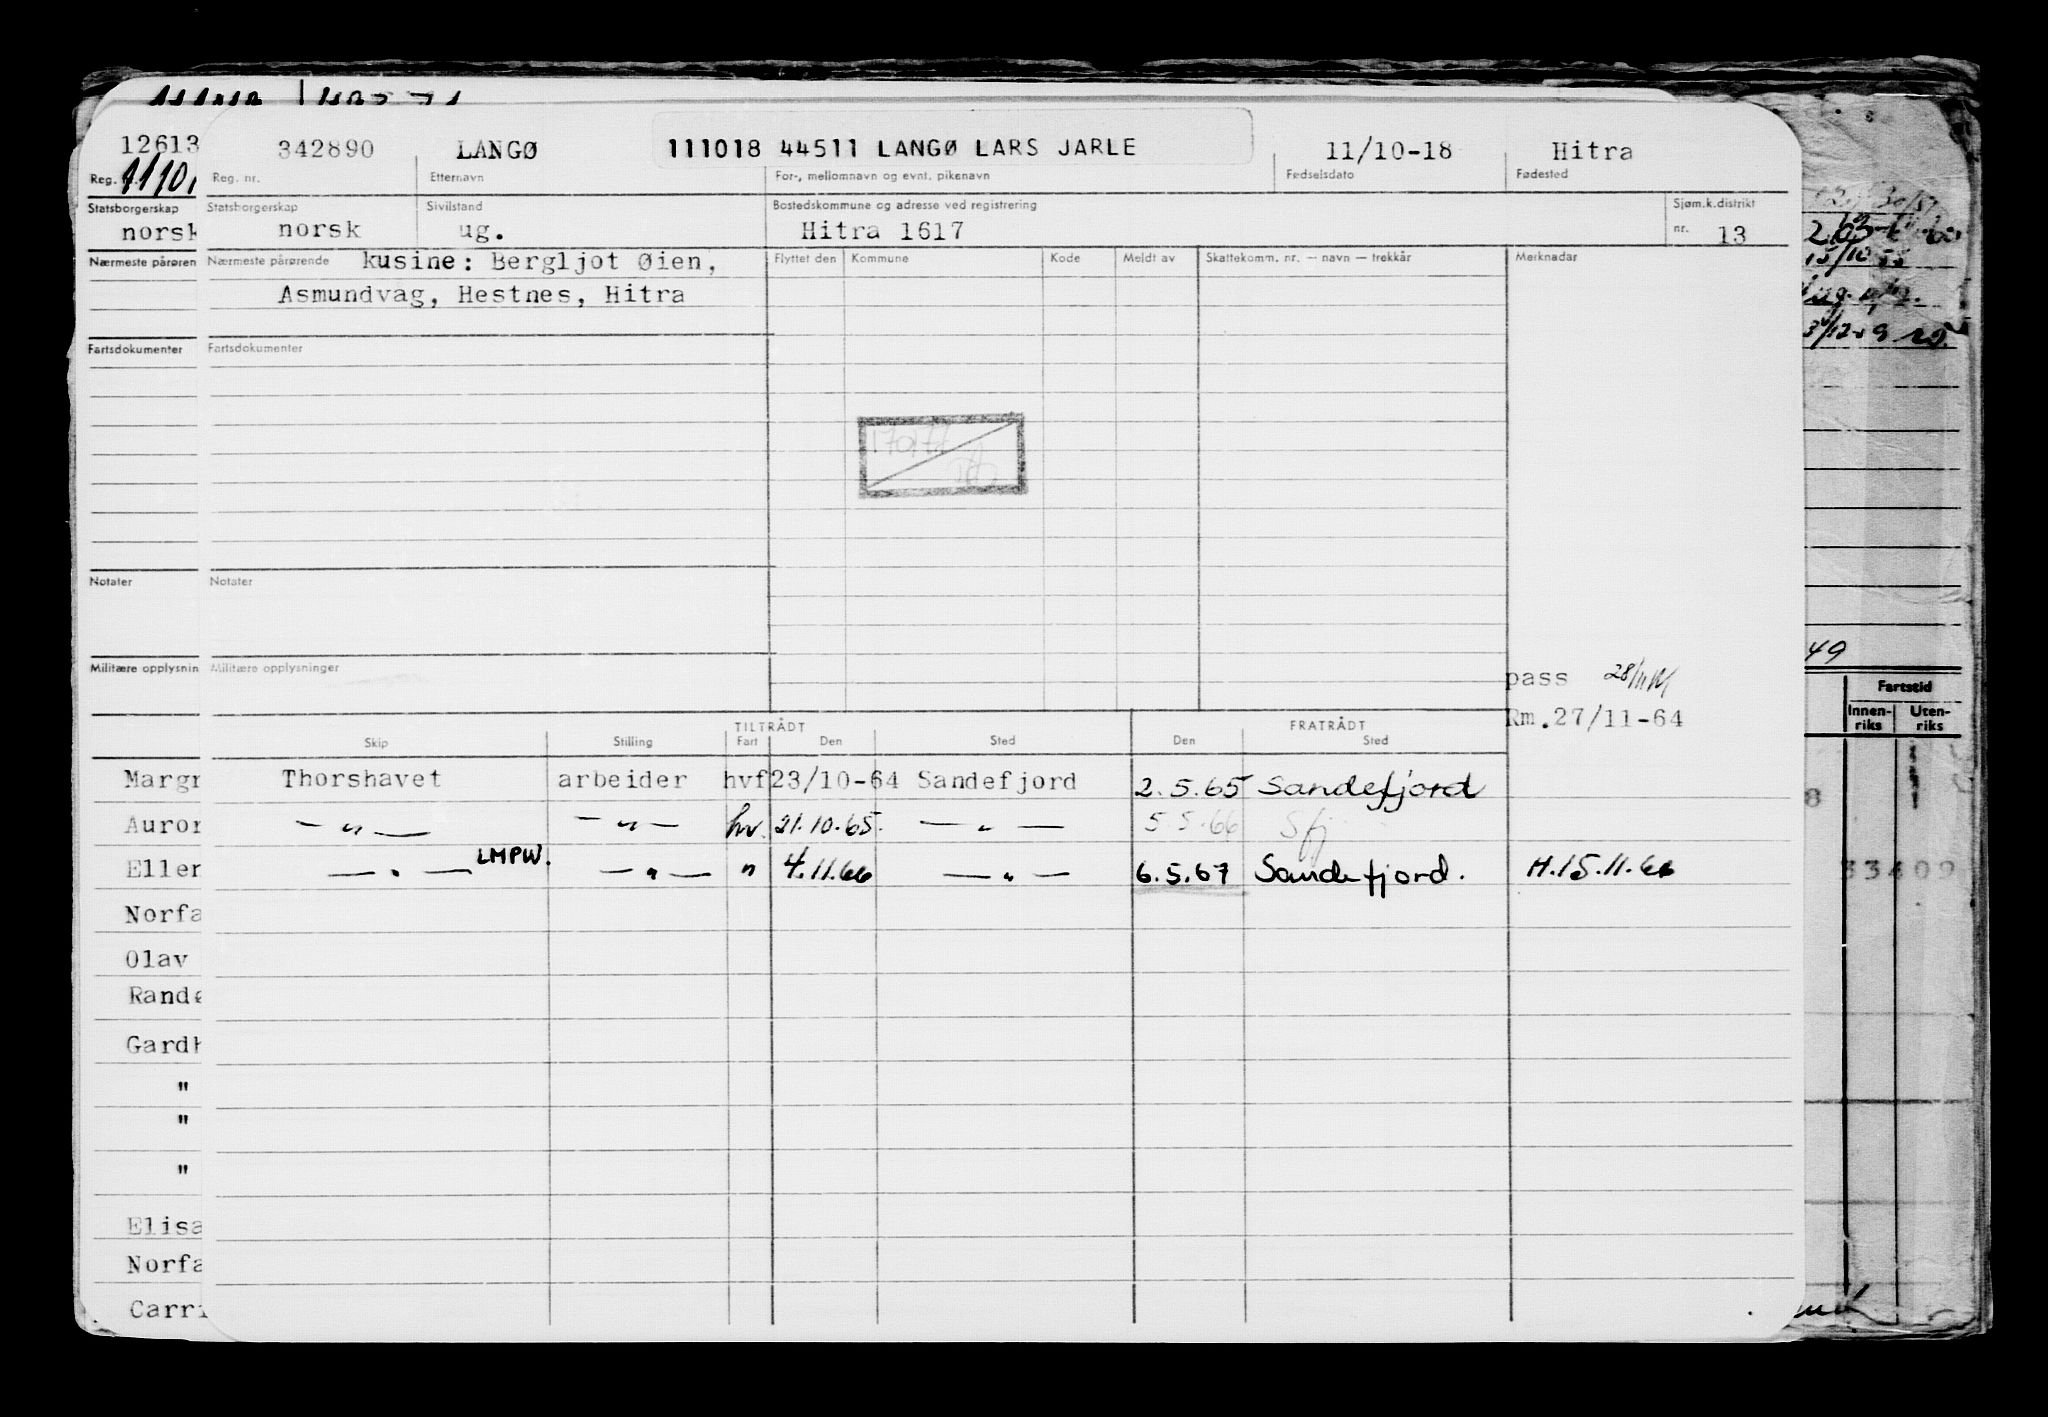 12613 342890 LANGØ 111018 44511 LANGØ LARS JARLE 11/10-18 Hitra
Reg. Reg. nr. Etternavn For-, mellomnavn og evnt. pikenavn Fødselsdato Fødested
Statsborgerskap Statsborgerskap Sivilstand Bostedskommune og adresse ved registrering Sjøm.k.distrikt
norsk norsk ug. Hitra 1617 nr. 13
Nærmeste pårøren Nærmeste pårørende kusine: Bergljot Øien, Flyttet den Kommune Kode Meldt av Skattekomm. nr. — navn — trekkår Merknader
Asmundvåg, Hestnes, Hitra
Fartsdokumenter Fartsdokumenter
Notater Notater
49
Militære opplysnin Militære opplysninger
pass
Fartstid
Rm.27/11-64
Innen-riks Uten-riks
TILTRÅDT FRATRÅDT
Skip Stilling Fart Den Sted Den Sted
Margr Thorshavet arbeider hvf 23/10-64 Sandefjord 2.5.65 Sandefjord
Auror —"— —"— hv. 21.10.65. —"— 5.5.66 Sfj
Eller —"— LMPW. —"— " 4.11.66 —"— 6.5.67 Sandefjord. H.15.11.66
33402
Norfa
Olav
Randø
Gardh
"
"
"
Elisa
Norfa
Carri